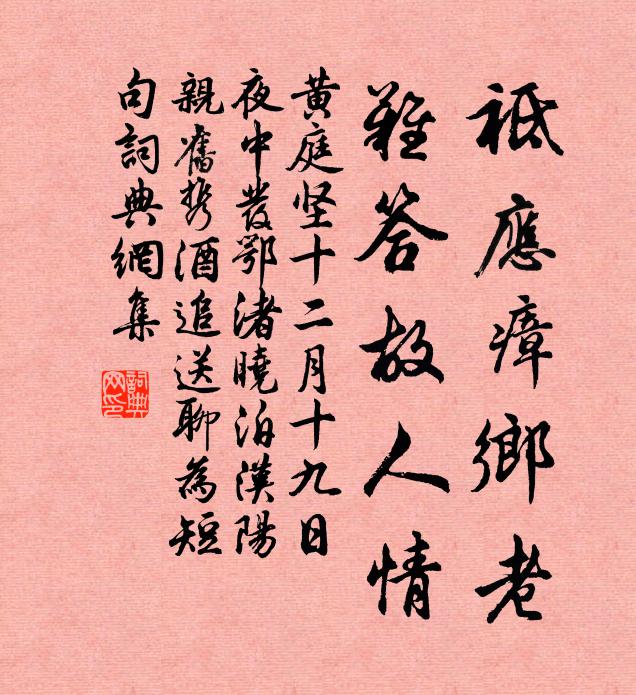 祗應瘴鄉老
難答故人情
黄庭坚十二月十九日
夜中發鄂渚曉泊漢陽
親舊携酒追送聊為短
句詞典網集
詞典
网印